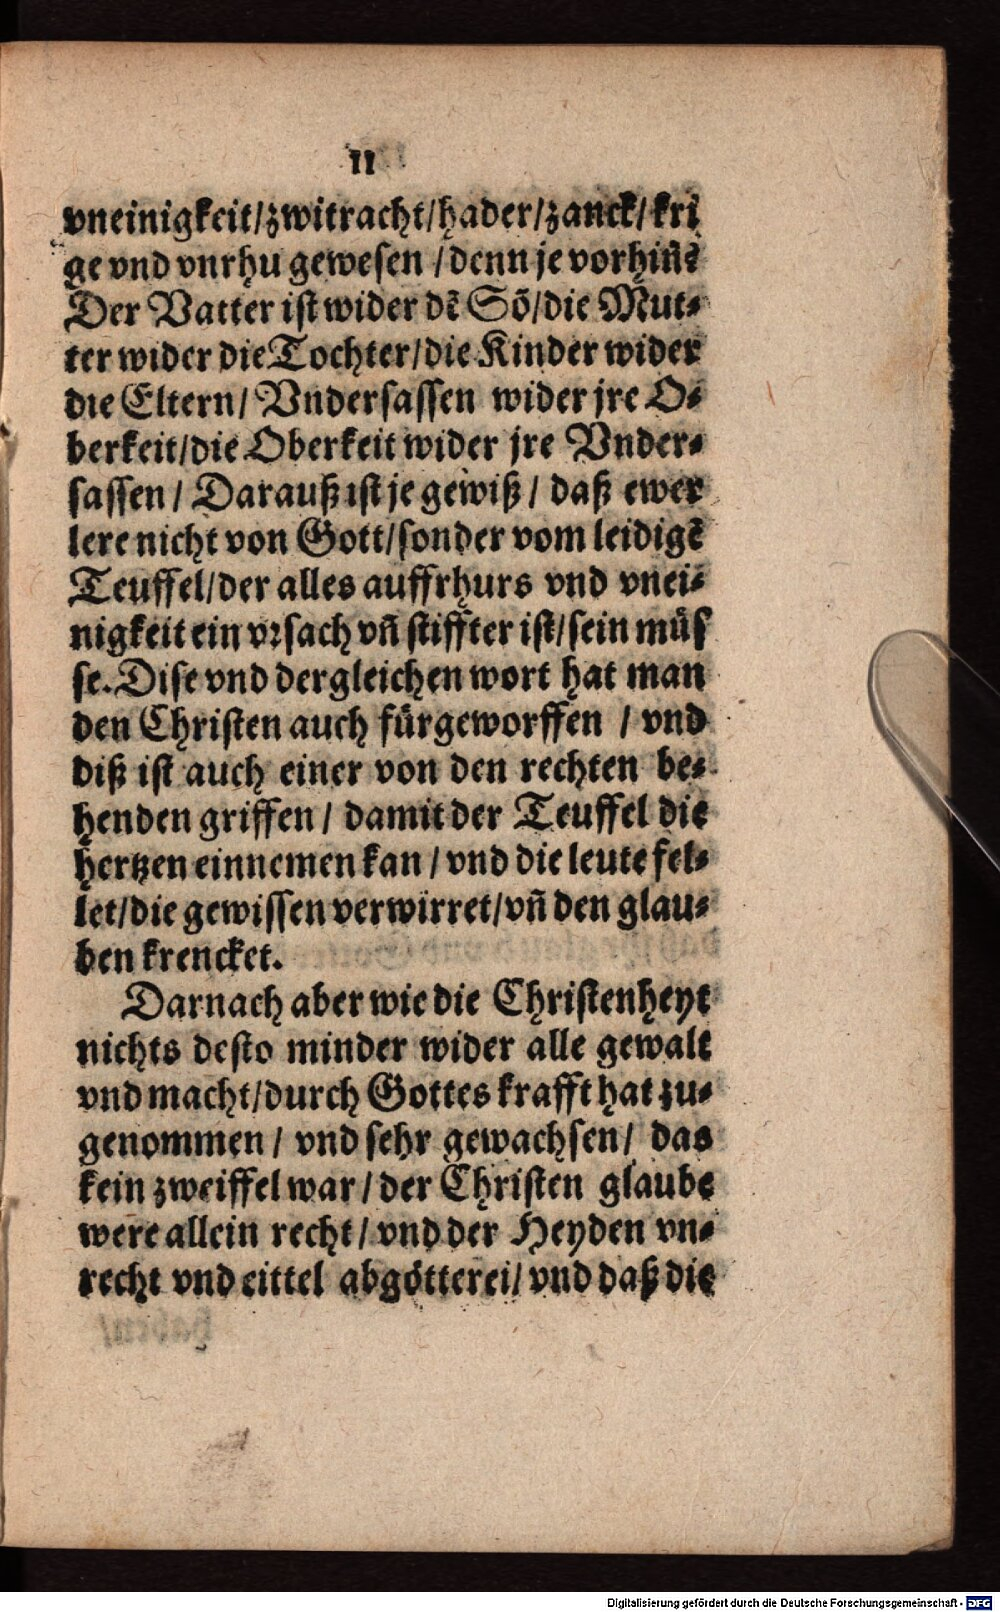 11
vneinigkeit/zwitracht/hader/zanck/kri
ge vnd vnrhu gewesen /denn je vorhiñẽ
Der Vatter ist wider dẽ Sõ/die Mut⸗
ter wider die Tochter/die Kinder wider
die Eltern/ Vndersassen wider jre O⸗
berkeit/die Oberkeit wider jre Vnder⸗
sassen / Darauß ist je gewiß / daß ewer
lere nicht von Gott/sonder vom leidigẽ
Teuffel/der alles auffrhurs vnd vnei⸗
nigkeit ein vrsach vñ stiffter ist/sein müs
se. Dise vnd dergleichen wort hat man
den Christen auch fürgeworffen / vnd
diß ist auch einer von den rechten be⸗
henden griffen / damit der Teuffel die
hertzen einnemen kan / vnd die leute fel⸗
let/die gewissen verwirret/vñ den glau⸗
ben krencket.
Darnach aber wie die Christenheyt
nichts desto minder wider alle gewalt
vnd macht/durch Gottes krafft hat zu⸗
genommen / vnd sehr gewachsen/ das
kein zweiffel war / der Christen glaube
were allein recht / vnd der Heyden vn⸗
recht vnd eittel abgötterei/ vnd daß die
Digitalisierung gefördert durch die Deutsche Forschungsgemeinschaft - DFG